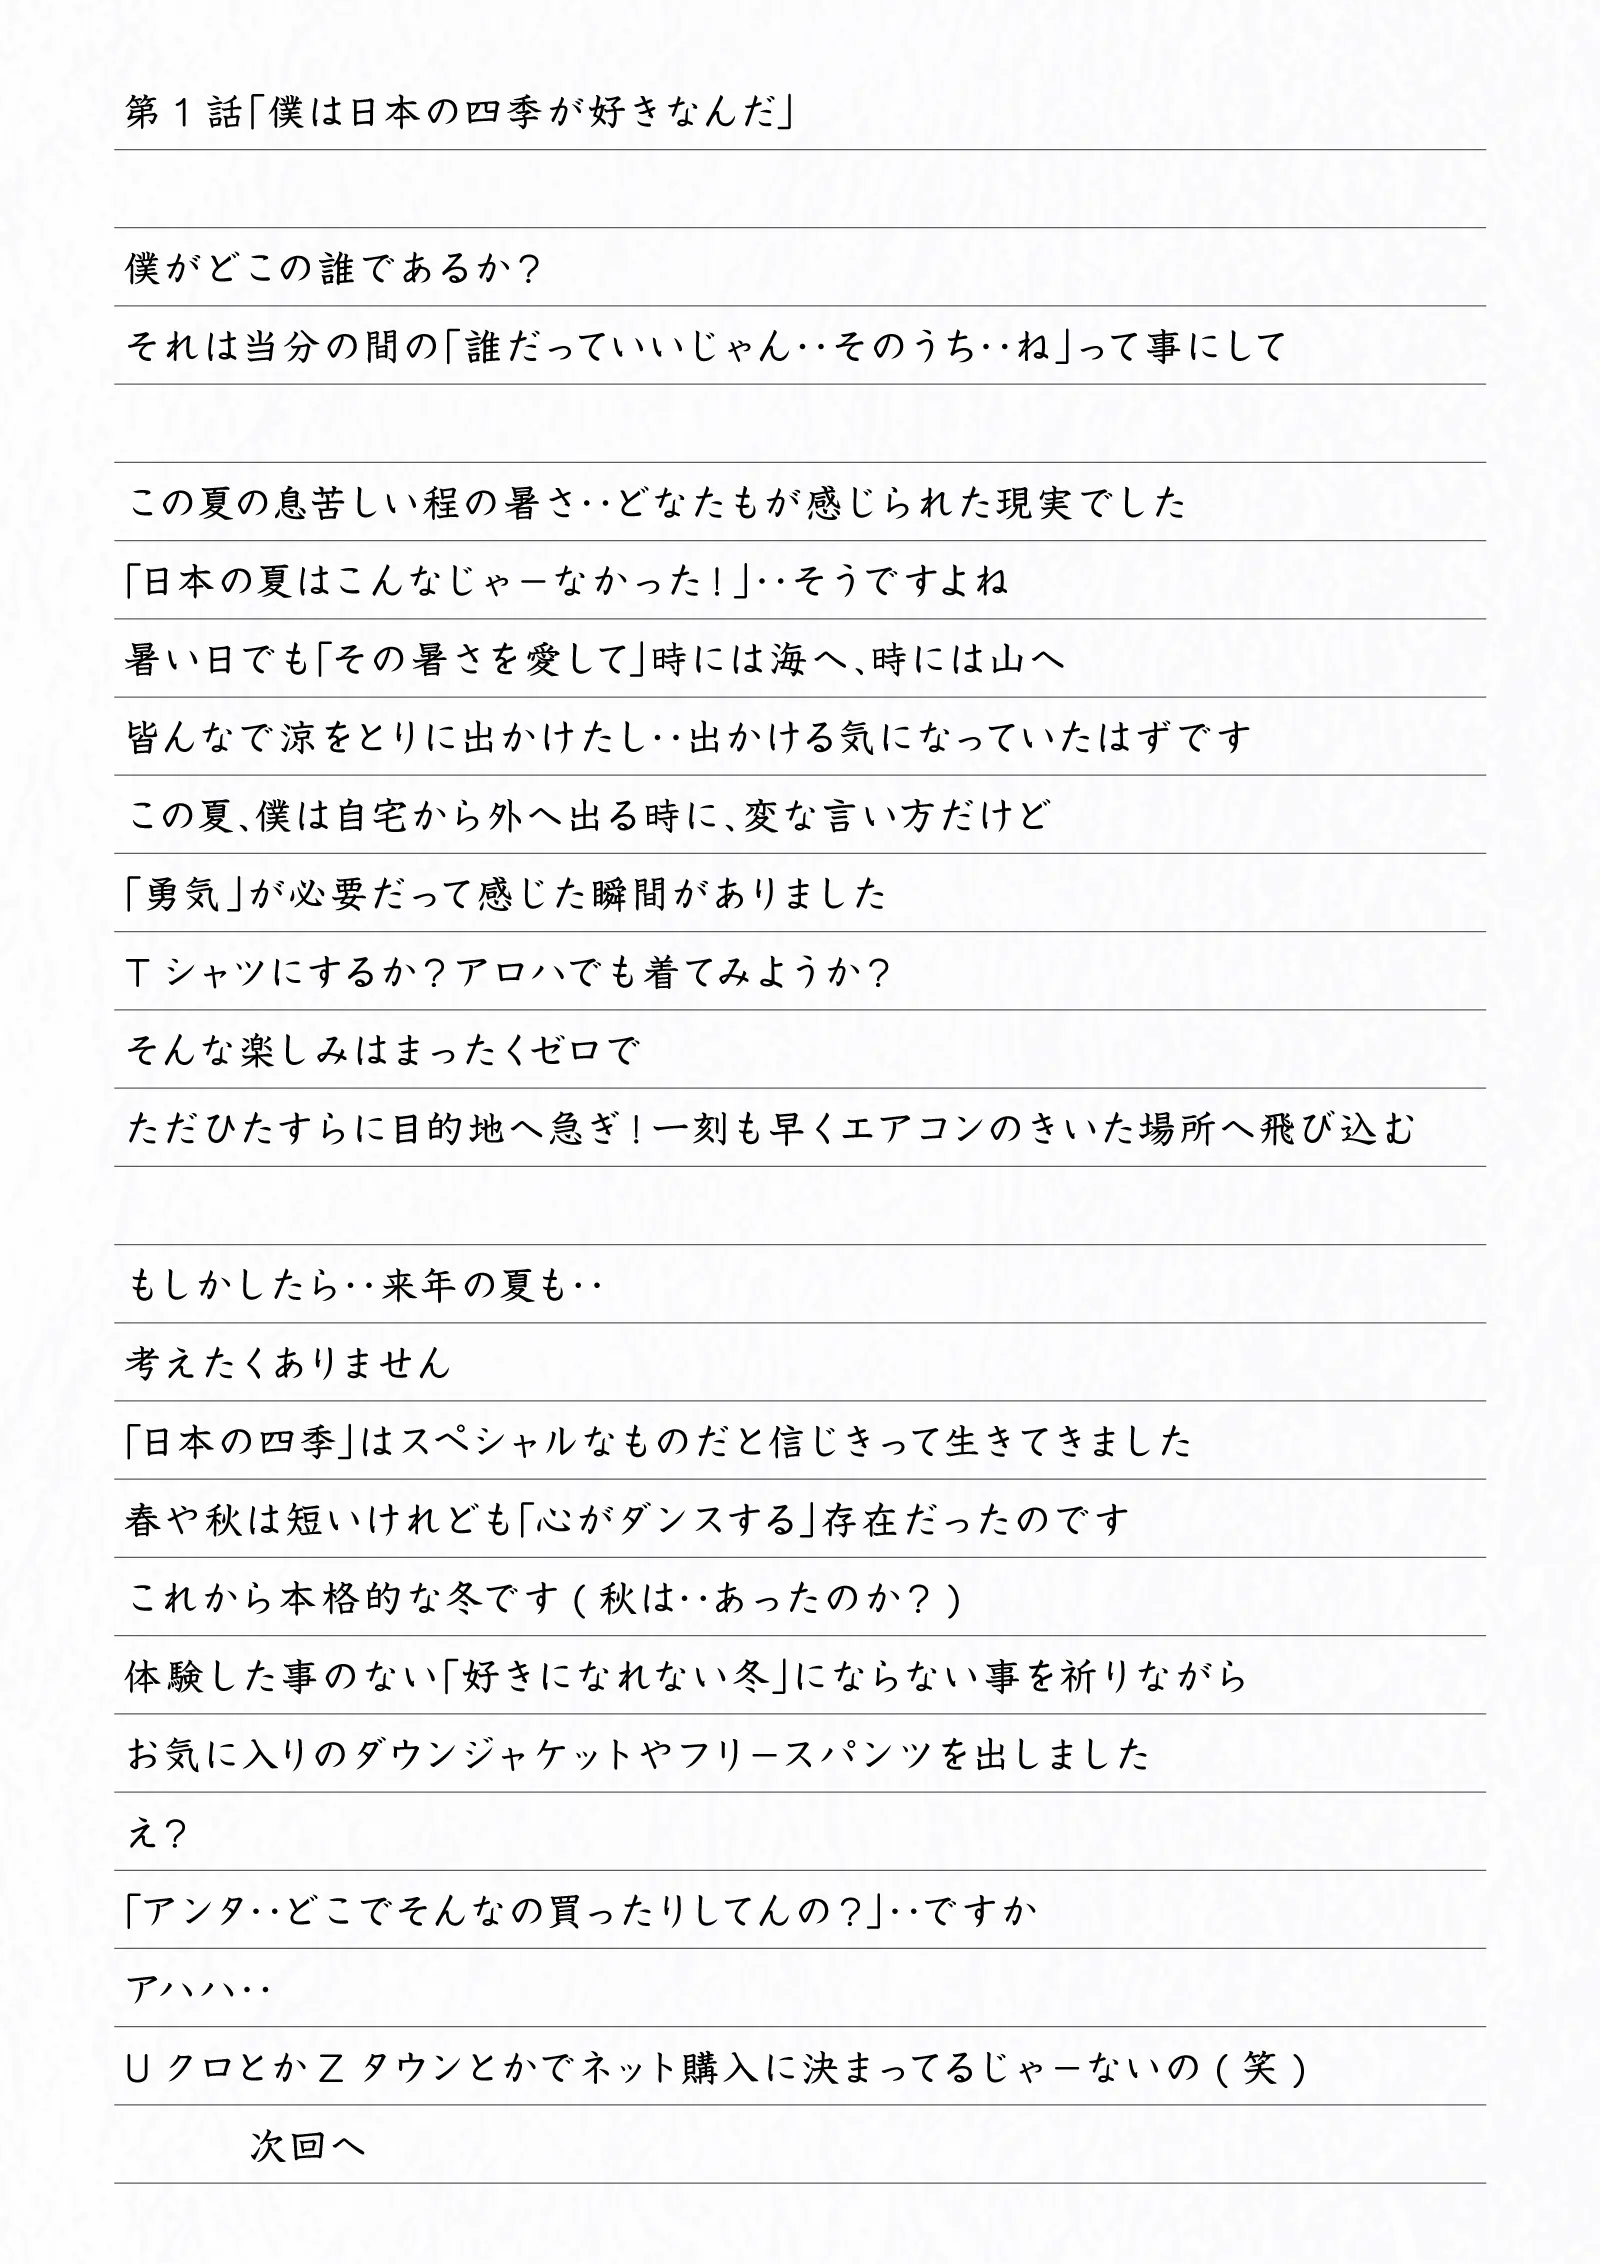 第1話「僕は日本の四季が好きなんだ」
僕がどこの誰であるか？
それは当分の間の「誰だっていいじゃん‥そのうち‥ね」って事にして
この夏の息苦しい程の暑さ‥どなたもが感じられた現実でした
「日本の夏はこんなじゃーなかった！」‥そうですよね
暑い日でも「その暑さを愛して」時には海へ、時には山へ
皆んなで涼をとりに出かけたし‥出かける気になっていたはずです
この夏、僕は自宅から外へ出る時に、変な言い方だけど
「勇気」が必要だって感じた瞬間がありました
Tシャツにするか？アロハでも着てみようか？
そんな楽しみはまったくゼロで
ただひたすらに目的地へ急ぎ！一刻も早くエアコンのきいた場所へ飛び込む
もしかしたら‥来年の夏も‥
考えたくありません
「日本の四季」はスペシャルなものだと信じきって生きてきました
春や秋は短いけれども「心がダンスする」存在だったのです
これから本格的な冬です(秋は‥あったのか？)
体験した事のない「好きになれない冬」にならない事を祈りながら
お気に入りのダウンジャケットやフリースパンツを出しました
え？
「アンタ‥どこでそんなの買ったりしてんの？」‥ですか
アハハ‥
UクロとかZタウンとかでネット購入に決まってるじゃーないの(笑)
次回へ